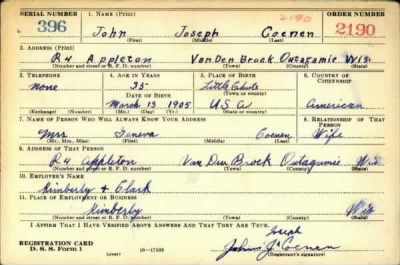 SERIAL NUMBER 1. NAME (Print) 2190 ORDER NUMBER
396 John Joseph Coenen 2190
(First) (Middle) (Last)
2. ADDRESS (Print)
R4 Appleton VanDen Brock Outagamie Wis.
(Number and street or R. F. D. number) (Town) (County) (State)
3. TELEPHONE 4. AGE IN YEARS 5. PLACE OF BIRTH 6. COUNTRY OF CITIZENSHIP
none 35 Little Chute
DATE OF BIRTH
March 13 1905 U.S.A American
(Exchange) (Number) (Mo.) (Day) (Yr.) (State or country)
7. NAME OF PERSON WHO WILL ALWAYS KNOW YOUR ADDRESS 8. RELATIONSHIP OF THAT PERSON
Mrs Geneva Coenen Wife
(Mr., Mrs., Miss) (First) (Middle) (Last)
9. ADDRESS OF THAT PERSON
R4 Appleton Van Den Brock Outagamie Wis
(Number and street or R. F. D. number) (Town) (County) (State)
10. EMPLOYER'S NAME
Kimberly & Clark
11. PLACE OF EMPLOYMENT OR BUSINESS
Kimberly Wis
(Number and street or R. F. D. number) (Town) (County) (State)
I AFFIRM THAT I HAVE VERIFIED ABOVE ANSWERS AND THAT THEY ARE TRUE.
Joseph
REGISTRATION CARD John J Coenen
D. S. S. Form 1 (over) (Registrant's signature)